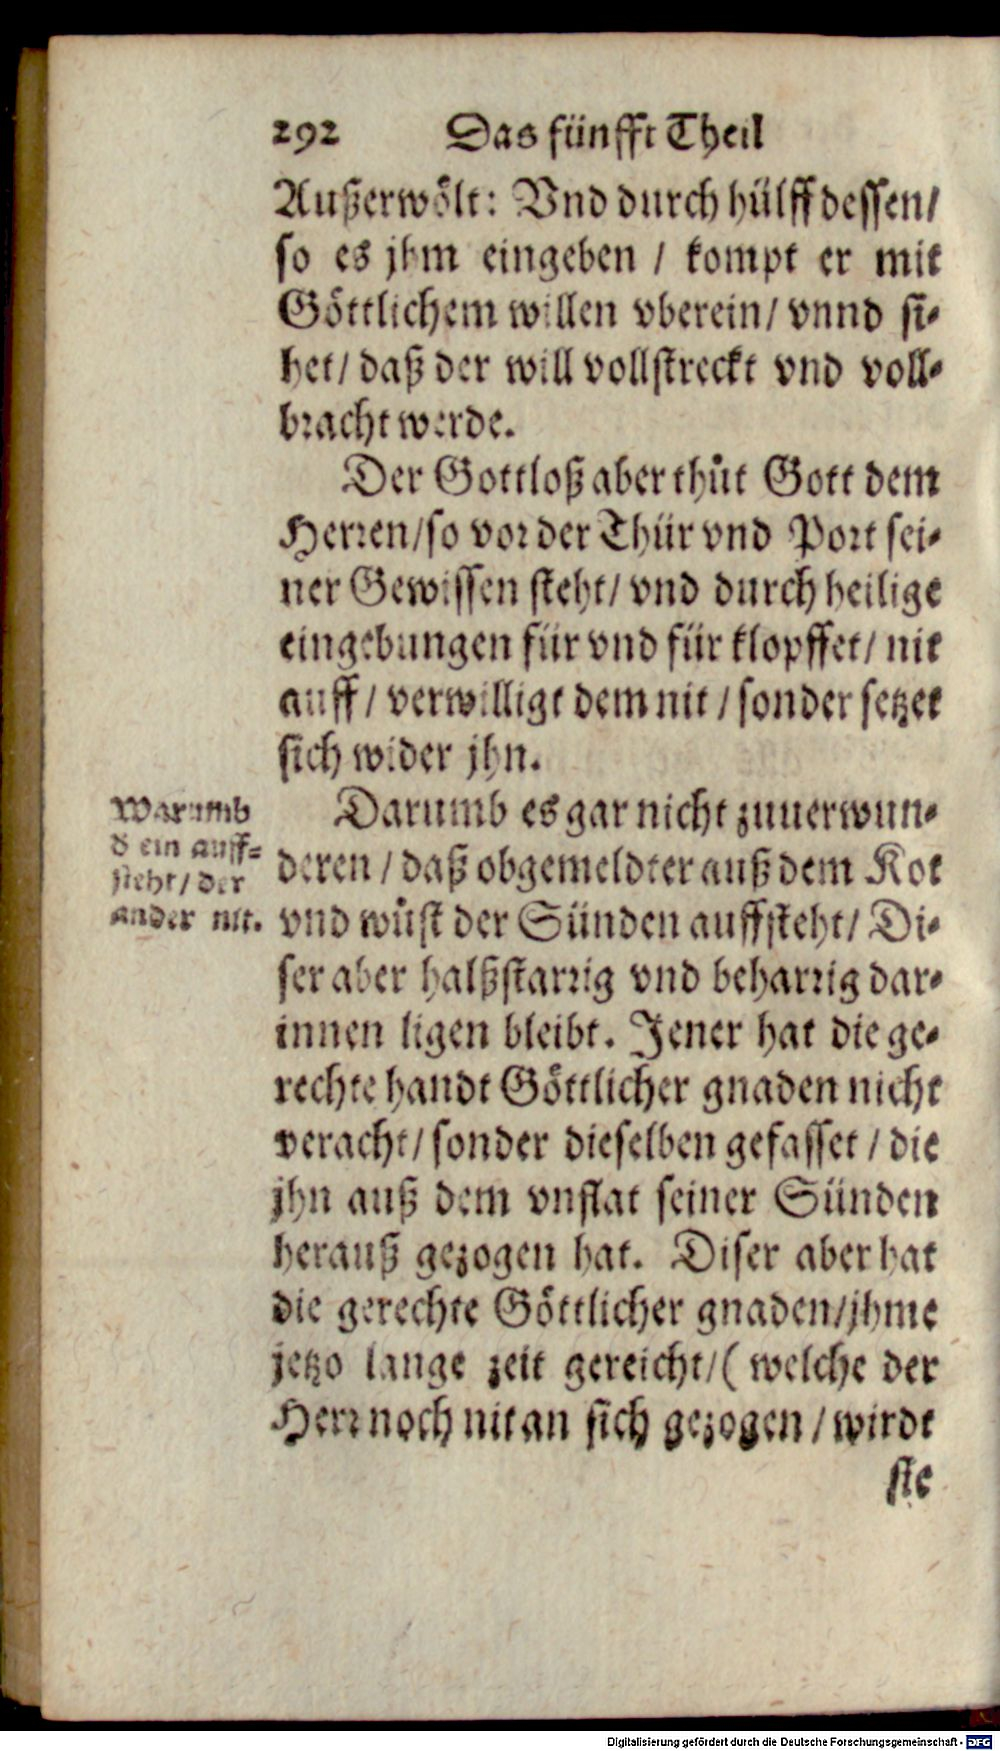 292 Das fünfft Theil
Außerwölt: Vnd durch hülff dessen/
so es jhm eingeben / kompt er mit
Göttlichem willen vberein/ vnnd si-
het/ daß der will vollstreckt vnd voll-
bracht werde.
Der Gottloß aber thůt Gott dem
Herren/so vor der Thür vnd Port sei-
ner Gewissen steht/ vnd durch heilige
eingebungen für vnd für klopffet/ nit
auff / verwilligt dem nit / sonder setzet
sich wider jhn.
Warumb
d ein auff-
steht/ der
ander nit.
Darumb es gar nicht zuuerwun-
deren / daß obgemeldter auß dem Kot
vnd wůst der Sünden auffsteht/ Di-
ser aber halßstarrig vnd beharrig dar-
innen ligen bleibt. Jener hat die ge-
rechte handt Göttlicher gnaden nicht
veracht/ sonder dieselben gefasset / die
jhn auß dem vnflat seiner Sünden
herauß gezogen hat. Diser aber hat
die gerechte Göttlicher gnaden/jhme
jetzo lange zeit gereicht/( welche der
Herr noch nit an sich gezogen / wirdt
ste
Digitalisierung gefördert durch die Deutsche Forschungsgemeinschaft - DFG